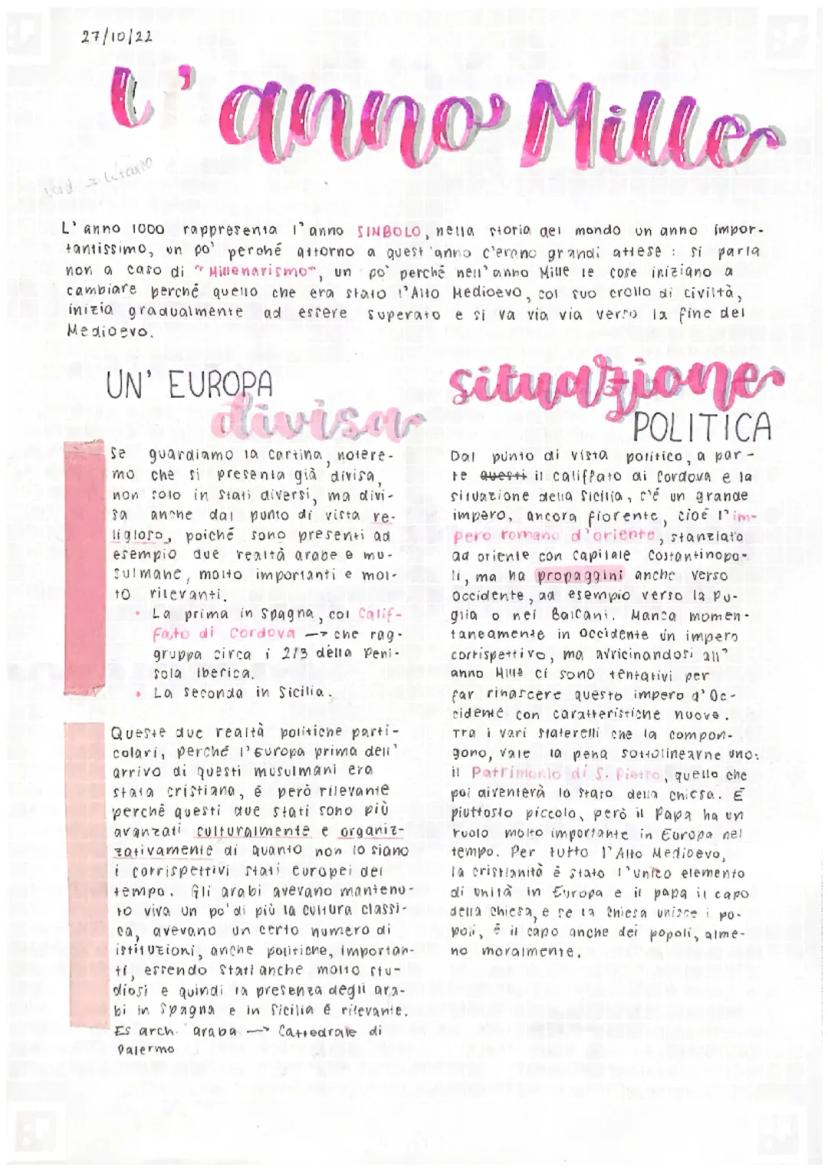 27/10/22
L'anno Mille
L'anno 1000 rappresenta l'anno SINBOLO, nella storia del mondo un anno impor-
tantissimo, un po' perché attorno a quest'anno c'erano grandi attese: si parla
non a caso di "Millenarismo", un po' perché nell'anno Mille le cose iniziano a
cambiare perché quello che era stato l'Alto Medioevo, col suo crollo di civiltà,
inizia gradualmente ad essere superato e si va via via verso la fine del
Medioevo.
UN' EUROPA
divisa
Se guardiamo la cartina, notere-
mo che si presenta già divisa,
non solo in stati diversi, ma divi-
sa anche dal punto di vista re-
ligioso, poiché sono presenti ad
esempio due realtà arabe e mu-
sulmane, molto importanti e mol-
to rilevanti.
• La prima in Spagna, col Calif-
fato di Cordova → che rag-
gruppa circa i 2/3 della Peni-
sola Iberica.
• La seconda in Sicilia.
Queste due realtà politiche parti-
colari, perché l'Europa prima dell'
arrivo di questi musulmani era
stata cristiana, é però rilevante
perché questi due stati sono più
avanzati culturalmente e organiz-
zativamente di quanto non lo siano
i corrispettivi stati europei del
tempo. Gli arabi avevano mantenu-
to viva un po' di più la cultura classi-
ca, avevano un certo numero di
istituzioni, anche politiche, importan-
ti, essendo stati anche molto stu-
diosi e quindi la presenza degli ara-
bi in Spagna e in Sicilia é rilevante.
Es arch. araba → Cattedrale di
Palermo
situazione
POLITICA
Dal punto di vista politico, a par-
te questi il califfato di Cordova e la
situazione della Sicilia, c'é un grande
impero, ancora fiorente, cioé l'im-
pero romano d'oriente, stanziato
ad oriente con capitale Costantinopo-
li, ma ha propaggini anche verso
Occidente, ad esempio verso la Pu-
glia o nei Balcani. Manca momen-
taneamente in Occidente un impero
corrispettivo, ma avvicinandosi all'
anno Mille ci sono tentativi per
far rinascere questo impero d'Oc-
cidente con caratteristiche nuove.
Tra i vari staterelli che la compon-
gono, vale la pena sottolinearne uno:
il Patrimonio di S. Pietro, quello che
poi diventerà lo stato della chiesa. É
piuttosto piccolo, però il Papa ha un
ruolo molto importante in Europa nel
tempo. Per tutto l'Alto Medioevo,
la cristianità é stato l'unico elemento
di unità in Europa e il papa il capo
della chiesa, e se la chiesa unisce i po-
poli, é il capo anche dei popoli, alme-
no moralmente.